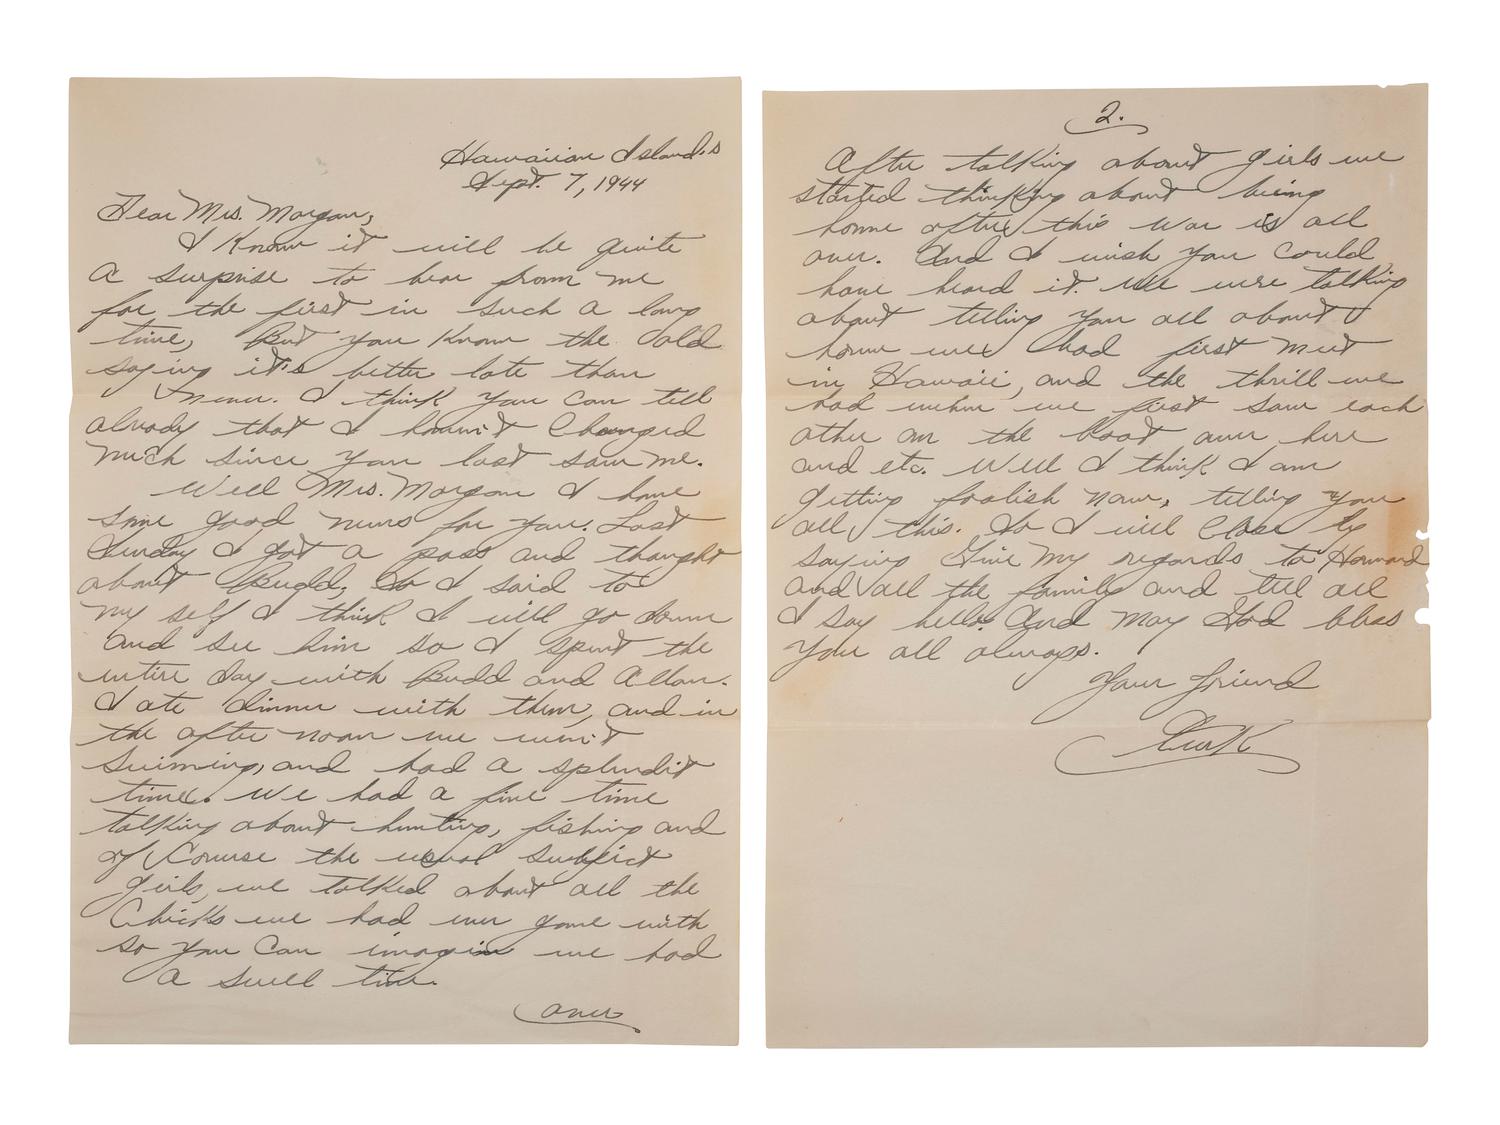 Hawaiian Islands
Sept. 7, 1944
Dear Mrs. Morgan,
I Know it will be quite
a surprise to hear from me
for the first in such a long
time, But you Know the Oold
saying it's better late than
never. I think you can tell
already that I haven't Changed
much since you last saw me.
Well Mrs. Morgan I have
some good news for you. Last
Sunday I got a pass and thought
about Budd, So I said to
my self I think I will go down
and see him so I spent the
entire day with Budd and Allan.
I ate dinner with them, and in
the after noon we went
swiming, and had a splendit
time. We had a fine time
talking about hunting, fishing and
of Course the usual subject
girls, we talked about all the
Chicks we had ever gone with
so you Can imagin we had
a swell time.
over
2.
After talking about girls we
started thinking about being
home after this war is all
over. And I wish you could
have heard it. We were talking
about telling you all about
how we had first meet
in Hawaii, and the thrill we
had when we first saw each
other on the boat over here
and etc. Well I think I am
getting foolish now, telling you
all this. So I will Close by
saying Give my regards to Howard
and all the family and tell all
I say hello. And may God bless
you all always.
Your friend